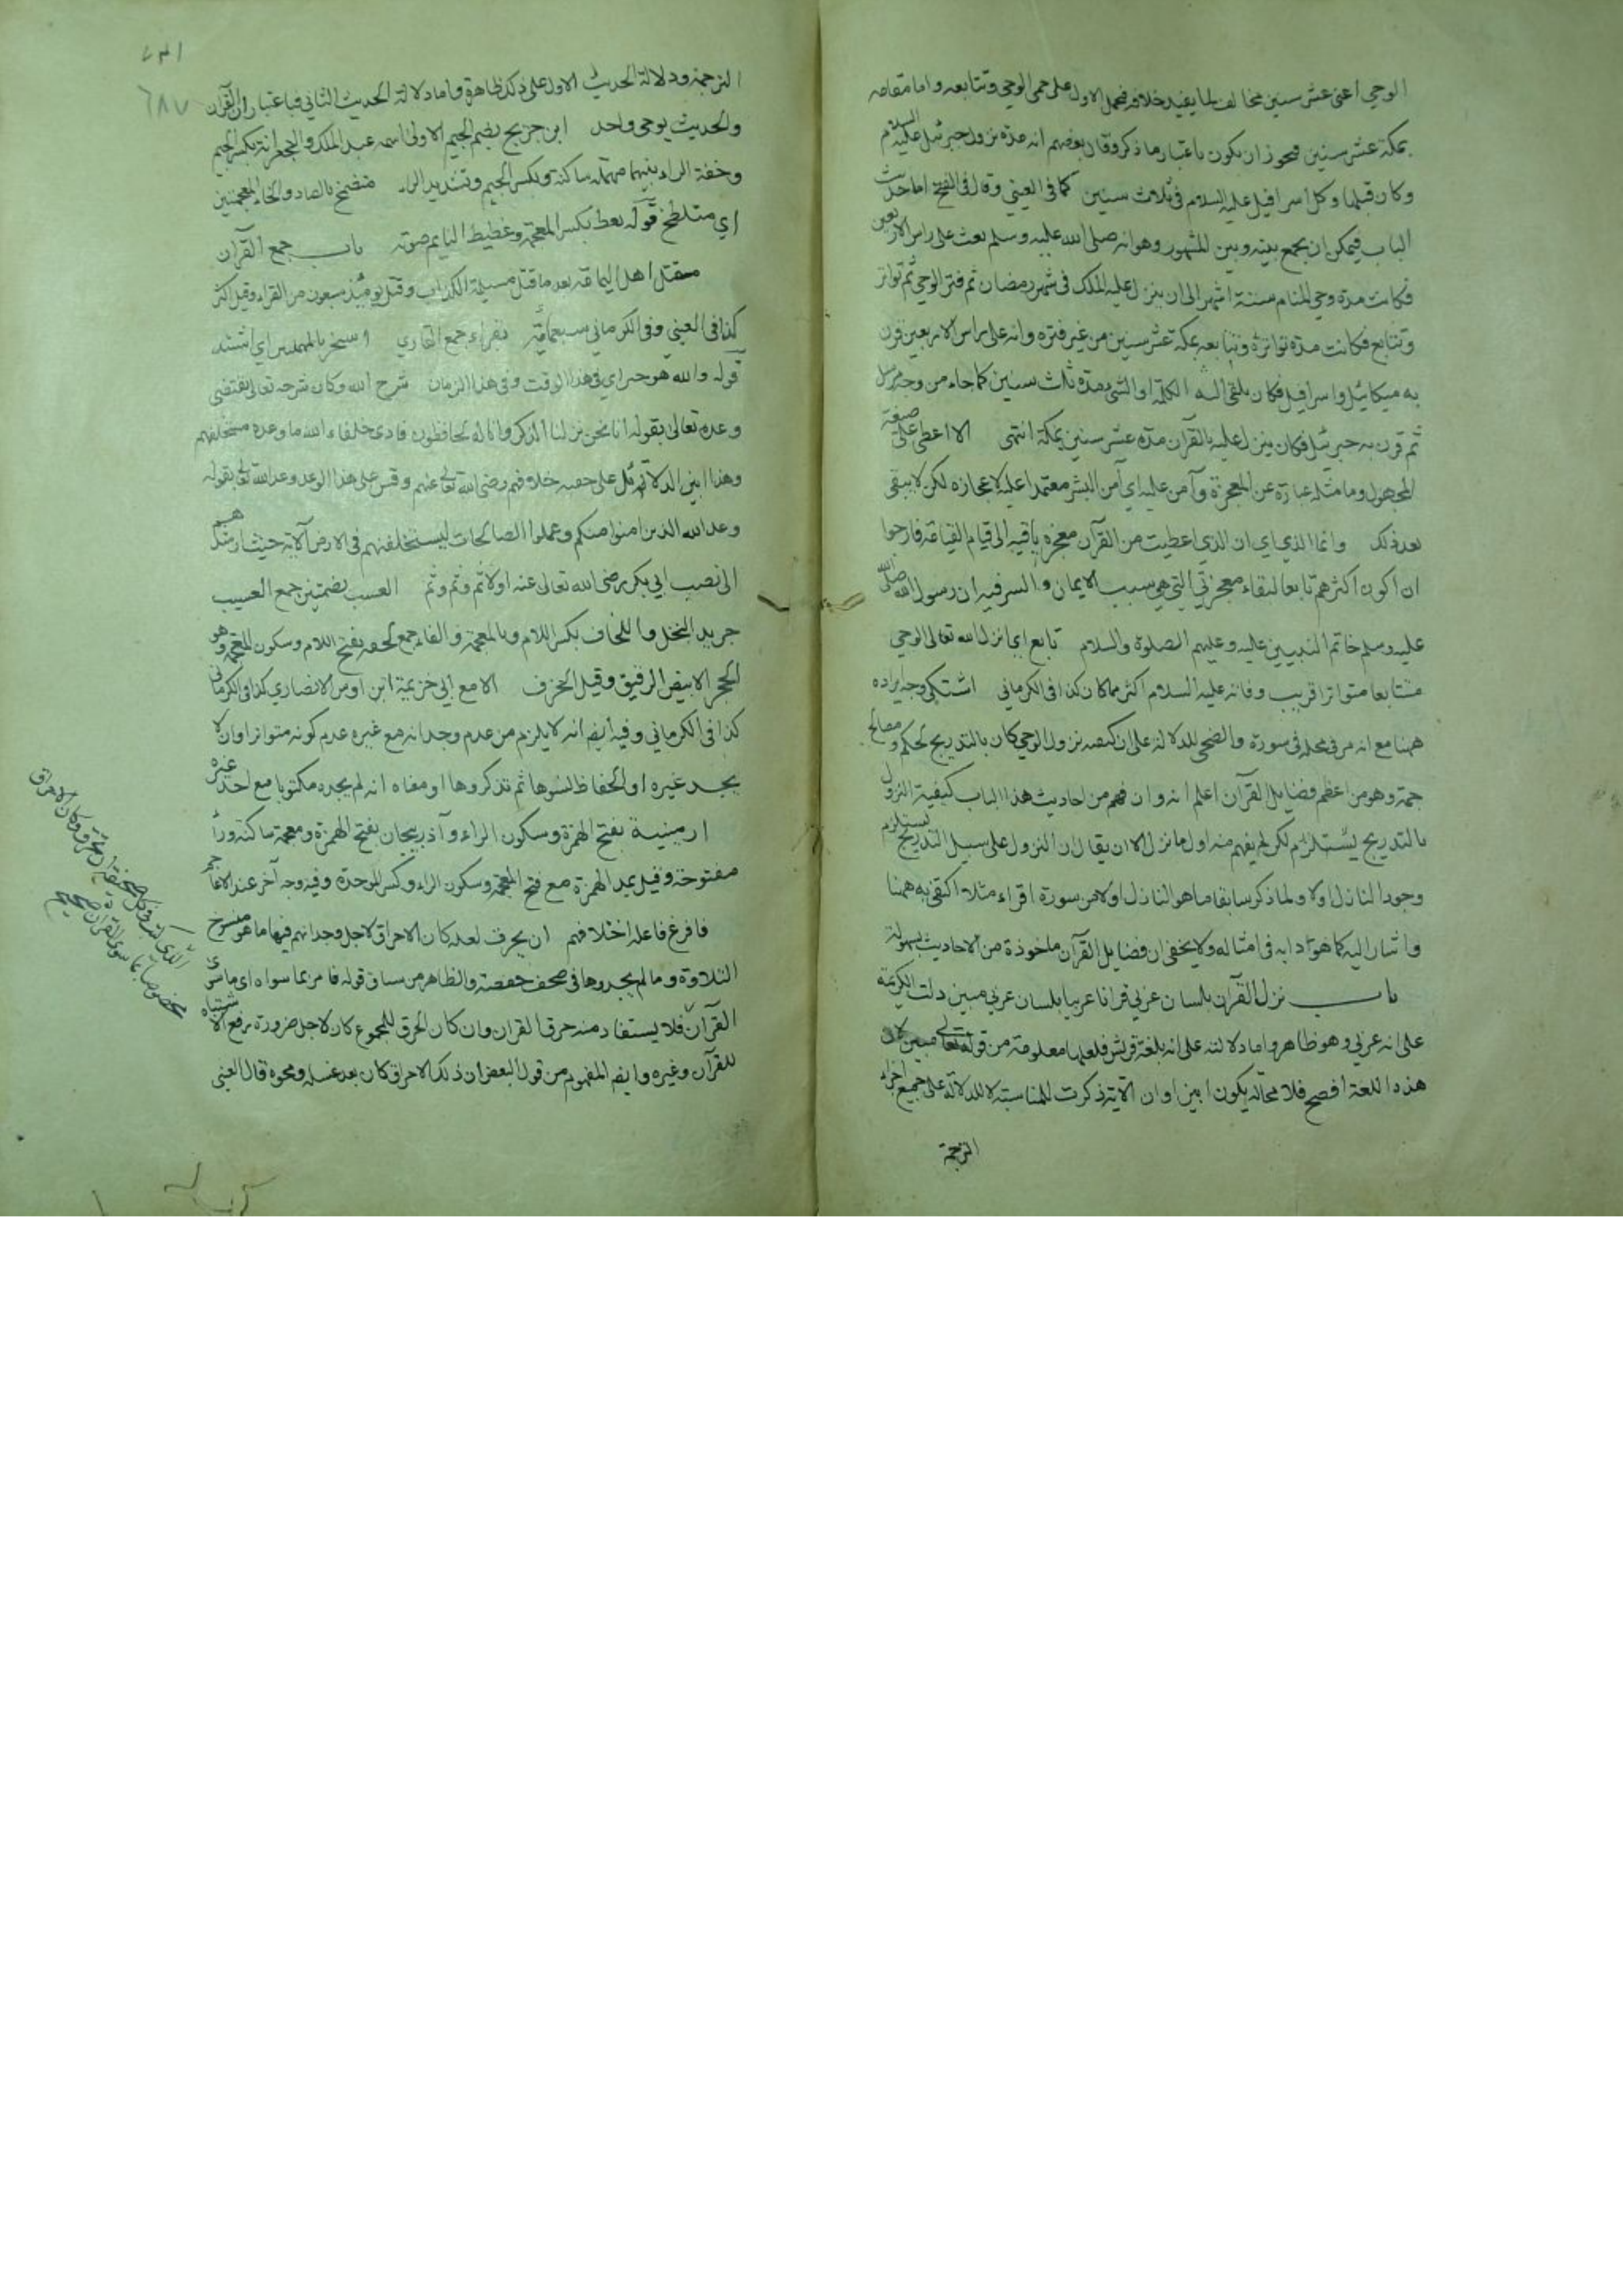 الوحي اعني عشر سنين مخالف لما يفيد خلافه فحمل الاول على حمى الوحي وتتابعه واما مقامه
بمكة عشر سنين فيجوز ان يكون باعتبار ما ذكر وقال بعضهم انه مدة نزول جبرئيل عليه السلام
وكان قبلها وكل اسرافيل عليه السلام في ثلاث سنين كما في العيني وقال في الفتح اما حديث
الباب فيمكن ان يجمع بينه وبين المشهور وهو انه صلى الله عليه وسلم بعث على راس الاربعين
فكانت مدة وحي المنام ستة اشهر الى ان ينزل عليه الملك في شهر رمضان ثم فتر الوحي ثم تواتر
وتتابع فكانت مدة تواتره وتتابعه بمكة عشر سنين من غير فترة وانه على راس الاربعين قرن
به ميكائيل واسرافيل فكان يلقي اليه الكلمة او الشيء مدة ثلاث سنين كما جاء من وجه مرسل
ثم قرن به جبرئيل فكان ينزل عليه بالقرآن مدة عشر سنين بمكة انتهى الا اعطي على صيغة
المجهول وما مثله عبارة عن المعجزة وآمن عليه اي آمن البشر معتمدا عليه لاعجازه لكن لا يبقى
بعد ذلك وانما الذي اي ان الذي اعطيت من القرآن معجزة باقية الى قيام القيامة فارجوا
ان اكون اكثرهم تابعا لبقاء معجزتي التي هي سبب الايمان والسر فيه ان رسول الله صلى الله
عليه وسلم خاتم النبيين عليه وعليهم الصلوة والسلام تابع اي انزل الله تعالى الوحي
متتابعا متواترا قريب وفاته عليه السلام اكثر مما كان كذا في الكرماني اشتكى وجه ايراده
ههنا مع انه مر في محله في سورة والضحى للدلالة على ان كيفية نزول الوحي كان بالتدريج لحكم ومصالح
جمة وهو من اعظم فضايل القرآن اعلم انه وان فهم من احاديث هذا الباب كيفية النزول
بالتدريج يستلزم لكن لم يفهم منه اول ما نزل الا ان يقال ان النزول على سبيل التدريج يستلزم
وجود النازل اولا ولما ذكر سابقا ما هو النازل اولا من سورة اقراء مثلا اكتفى به ههنا
واشار اليه كما هو دابه في امثاله ولا يخفى ان فضايل القرآن ماخوذة من الاحاديث بسهولة
باب نزل القرآن بلسان عربي قرانا عربيا بلسان عربي مبين دلت الكريمة
على انه عربي وهو ظاهر واما دلالته على انه بلغة قريش فلعلها معلومة من قوله تعالى مبين لان
هذه اللغة افصح فلا محالة يكون ابين او ان الآية ذكرت للمناسبة لا للدلالة على جميع اجزاء
الترجمة
٦٨٧
الترجمة ودلالة الحديث الاول على ذلك ظاهرة واما دلالة الحديث الثاني فباعتبار ان القرآن
والحديث بوحي واحد ابن جريج بضم الجيم الاولى اسمه عبد الملك والجعرانة بكسر الجيم
وخفة الراء بينهما مهملة ساكنة وبكسر الجيم وتشديد الراء متضمخ بالضاد والخاء المعجمتين
اي متلطخ قوله يغط بكسر المعجمة وغطيط النايم صوته باب جمع القرآن
مقتل اهل اليمامة بعد ما قتل مسيلمة الكذاب وقتل يومئذ سبعون من القراء وقيل اكثر
كذا في العيني وفي الكرماني سبعمائة بقراء جمع القاري استحر بالمهملتين اي اشتد
قوله والله هو خير اي في هذا الوقت وفي هذا الزمان شرح الله وكان شرحه تعالى بمقتضى
وعده تعالى بقوله انا نحن نزلنا الذكر وانا له لحافظون فادى خلفاء الله ما وعده مستخلفهم
وهذا ابين الدلائل على حقية خلافهم رضي الله تعالى عنهم وقس على هذا الوعد وعد الله تعالى بقوله
وعد الله الذين امنوا منكم وعملوا الصالحات ليستخلفنهم في الارض الآية حيث ارشدهم
الى نصب ابي بكر رضي الله تعالى عنه اولا ثم وثم وثم العسب بضمتين جمع العسيب
جريد النخل واللخاف بكسر اللام وبالمعجمة والفاء جمع لخفة بفتح اللام وسكون المعجمة وهو
الحجر الابيض الرقيق وقيل الخزف الا مع ابي خزيمة ابن اوس الانصاري كذا في الكرماني
كذا في الكرماني وفيه ايضا انه لا يلزم من عدم وجدانه مع غيره عدم كونه متواترا وان لا
يجد غيره او الحفاظ نسوها ثم تذكروها او معناه انه لم يجده مكتوبا مع احد غيره
ارمينية بفتح الهمزة وسكون الراء وآذربيجان بفتح الهمزة ومعجمة ساكنة وراء
مفتوحة وقيل بمد الهمزة مع فتح المعجمة وسكون الراء وكسر الموحدة وفيه وجه آخر عند الاعاجم
فافزع فاعله اختلافهم ان يحرق لعله كان الاحراق لاجل وجدانهم فيها ما هو منسوخ
التلاوة وما لم يجدوها في صحف حفصة والظاهر من سباق قوله فامر بما سواه اي ما سوى
القرآن فلا يستفاد منه حرق القران وان كان الحرق للمجموع كان لاجل ضرورة رفع الاشتباه
للقرآن وغيره وايضا المفهوم من قول البعض ان ذلك الاحراق كان بعد غسله ومحوه قال العيني